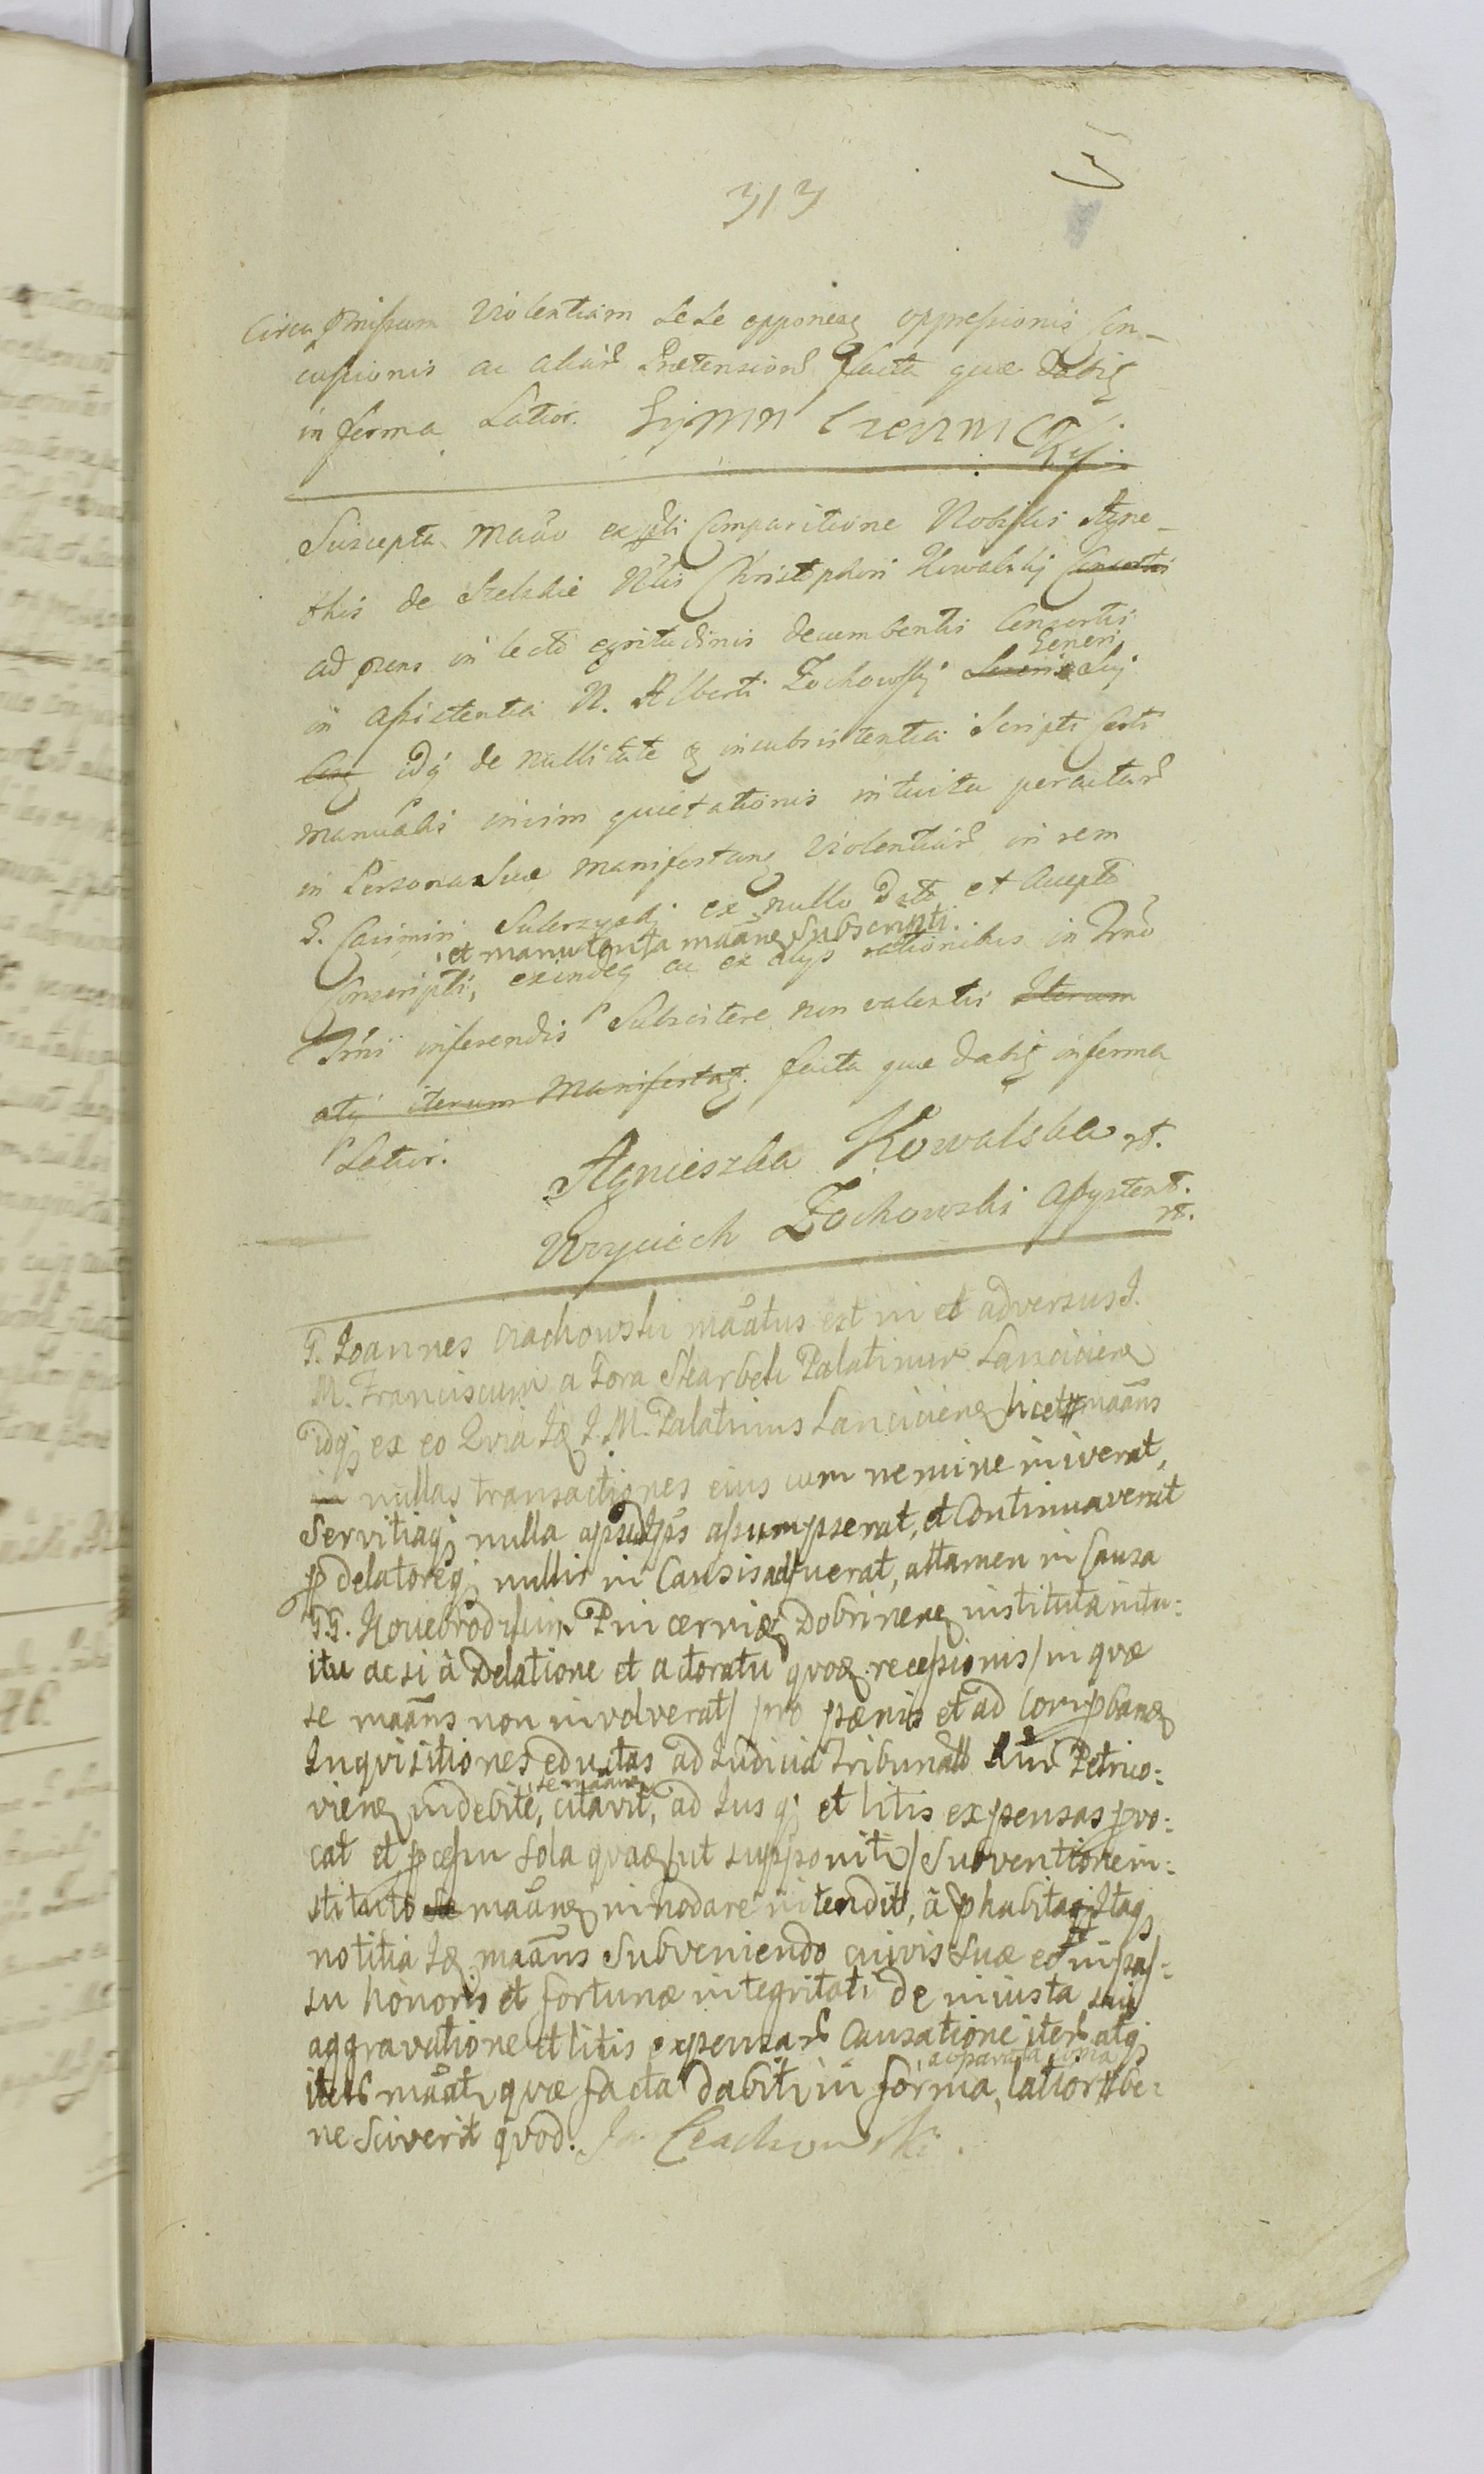 313
Circa pmissum Violentiam sese opponens oppressionis Con-
cussionis ac aliar Prætension facta quæ dabit
in forma Latior. Szymon Czerniicki
Suscepta Maão expti Comparitione Nobilis Agne-
this de Szelskie Nlis Christophori Kowalskj Consortis
ad præns in lecto egritudinis decumbentis Consortis
Generi
in assistentia N. Alberti Zochowskj Suj
idq de nullitate & insubsistentia Scripti Certi
manualis quietationis intuitu peractar
in Persona Sua manifestan Violentiar in rem
G. Casimiri ex nullo Dato et Accepto
et manutenta maãne Subscripti.
Conscripti, exindeq ac ex alijs rationibus in Trno
Trni inferendis Subsistere non valentis Iterum
atq iterum Manifestat. facta quæ dabit in forma
Latior.
Agnieszka Kowalska rt.
Woyciech Zochowski assystent.
rt.
G. Joannes Czachowski maãtus est in et adversus J.
M. Franciscum a Gora Skarbek Palatinum Lanciciens
idq; ex eo Qvia Iq J. M. Palatinus Lanciciens licet maãns
in nullas transactiones eius cum nemine iniverat,
Servitiaq; nulla apud ips assumpserat, et Continuaverat
p delatoreq; nullis in Causis adfuerat, attamen in Causa
GG. Pincernæ Dobrinens instituta intu:
itu ac si à Delatione et actoratu quoq. recessionis / in quæ
se maãns non involverat / pro pænis et ad Compbans
Inquisitiones eductas ad Iudicia Tribunal Petrico:
se maãne
viens indebite, citavit, ad Ius q; et litis expensas pvo:
cat et pcessu sola quæ / ut supponit / Subventione in:
stituto se maãne innodare intendit, à phabita Itaq
notitia Iq maãns Subveniendo cuivis suæ et in pas:
su honoris et fortunæ integritati De iniusta sui
aggravatione et litis expensar Causatione iter atq;
iter maãt, quæ facta dabit in forma, latior be:
ne Sciverit quod. Jan Czachowski.